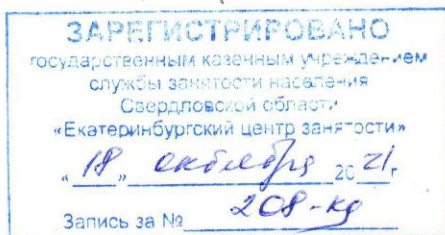 ЗАРЕГИСТРИРОВАНО
государственным казенным учреждением
службы занятости населения
Свердловской области
«Екатеринбургский центр занятости»
«18» октября 2021г.
Запись за № 208-кд